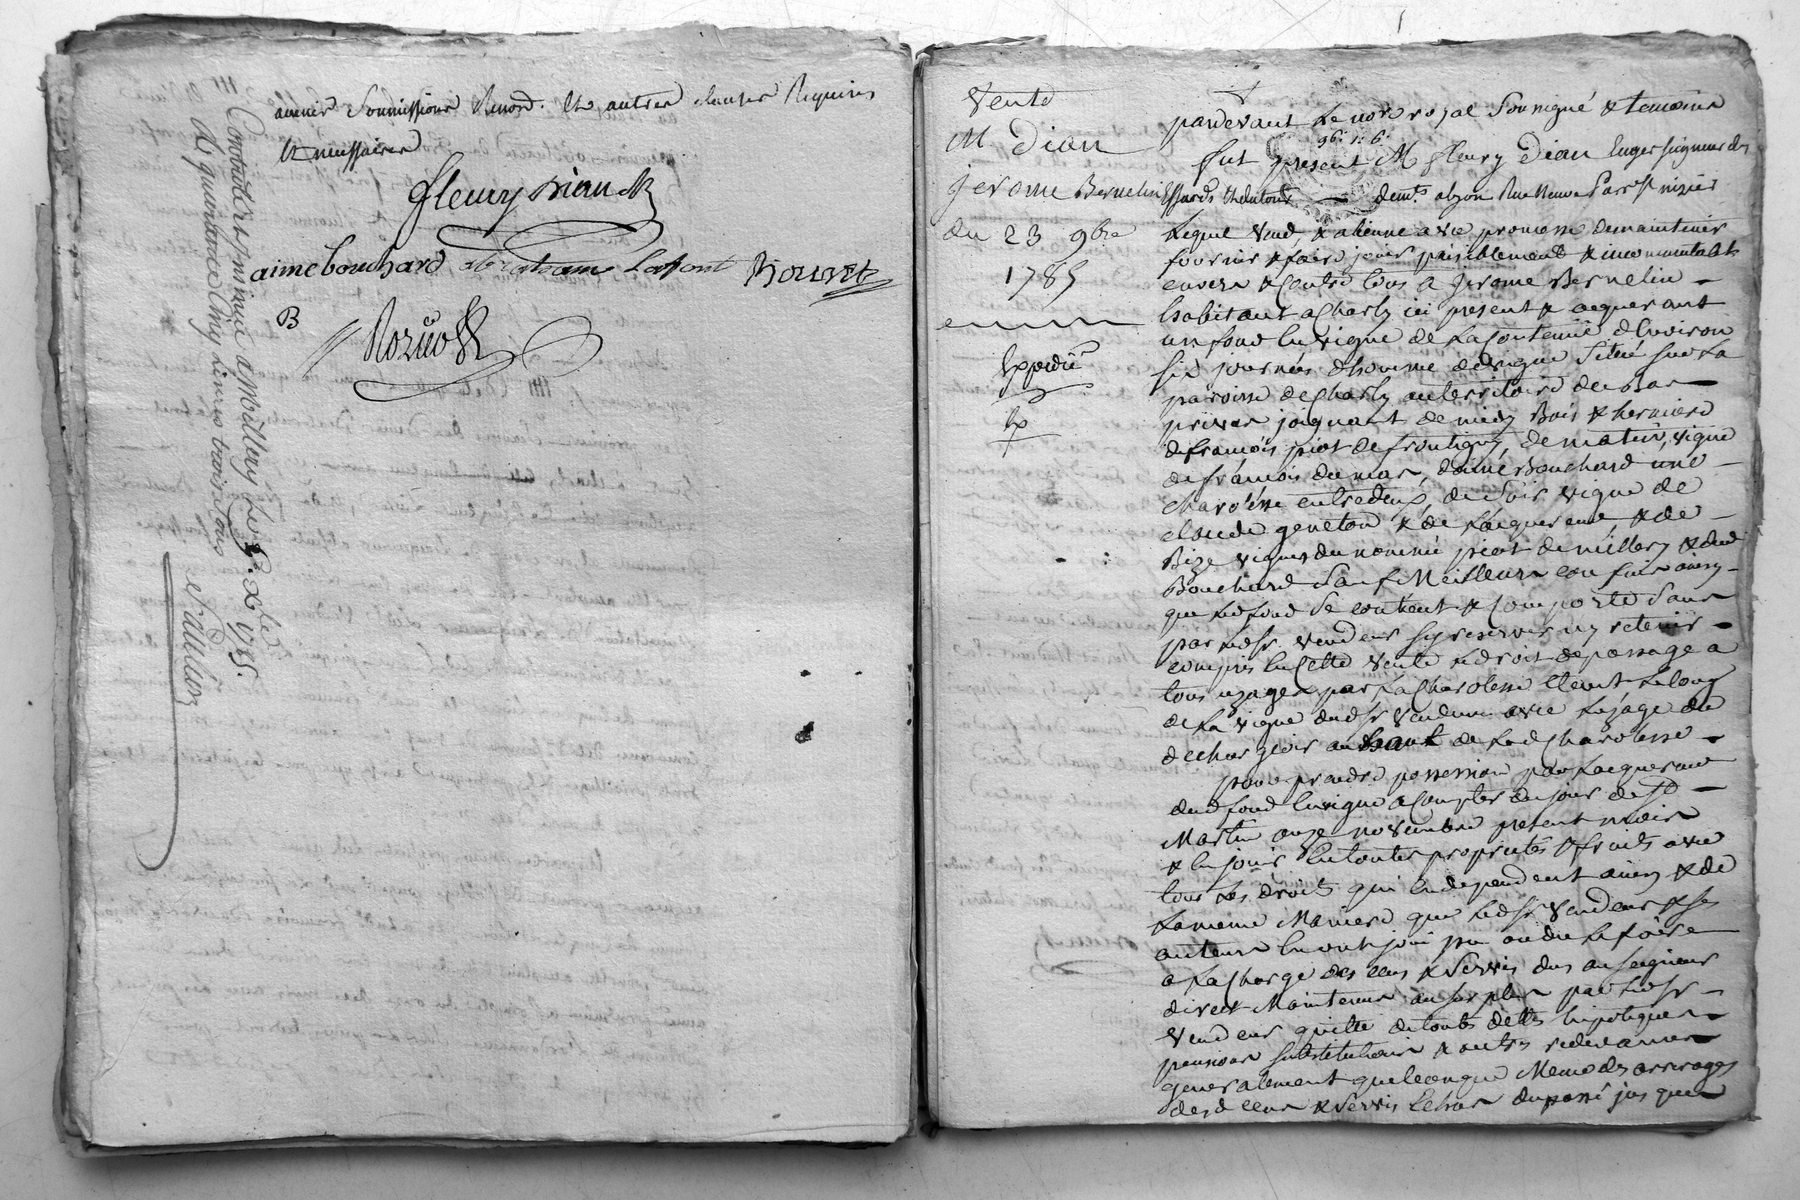 avenir Soumissions Renon. Et autres clauses Requises
Et necessaires
fleury Dian
aimé bouchard abraham Lafont Bouvet
B
Controllé et insinué a Millery Le 1785.
Rx quarante Cinq Livres trois sous
Vente
M Dian
jerome Bernelin
du 23 9bre
1785
Expedié
Ex
pardevant Le nore royal Soussigné & temoins
96: 1: 6
fut present M fleury Dian Seigneur des
demt. alyon Rue Neuve Parr St nizier
Lequel vend, & alienne avec promesse demaintenir
fournir & faire jouir paisiblement & incommutablt
envers & Contre tous a jerome Bernelin
habitant a Charly ici present & acquerant
un fond En vigne de La Contenüe d'Environ
Six journées d'homme devigne Situé Sur La
paroisse de Charly au territoire de Bas
privas joignant de midy Bois & hermiere
de françois piot de frontigny, de matin, vigne
de françois dumas, daimé Bouchard une
Charoisse entredeux, de Soir vigne de
claude geneton & de L'acquereur, & de
Bize vignes du nommé piot de millery & dud
Bouchard Sauf Meilleurs confins ainsy
que Led fond Se contient & Comporte Sans
par led Sr vendeur s'y reserver ny retenir
compris En Cette vente Le droit de passage a
tous uzages par La Charoisse Etant Le long
de La vigne dud Sr vendeur avec Lezage du
dechargeoir au haut de Lad Charoisse
pour prendre possession par L'acquereur
dud fond En vigne a Compter du jour de St
Martin onze novembre present mois
& En jouir En toutes proprietés & fruits avec
tous Les droits qui En dependent ainsy & de
La meme Maniere que Led Sr vendeur & Ses
auteurs En ont joui pu ou du Le faire
a La Charge des cens & Servis dus au Seigneur
direct Maintenus au Surplus par Led Sr
vendeur quitte de toutes dettes hipoteques
pensions Substitutions & autres redevances
generalement quelconque Meme des arrerages
desd cens & Servis Echus du passé jusques